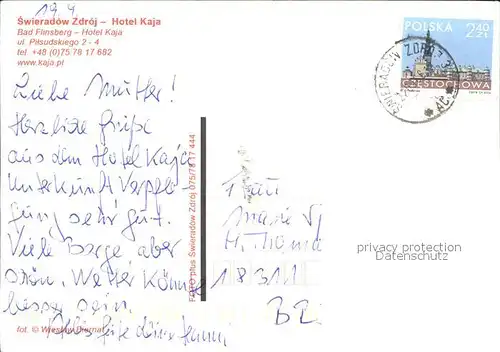 19.4.
Świeradów Zdrój – Hotel Kaja
Bad Flinsberg – Hotel Kaja
ul. Piłsudskiego 2 - 4
tel. +48 (0)75 78 17 682
www.kaja.pl
POLSKA
2,40 ZŁ
CZĘSTOCHOWA
ŚWIERADÓW ZDRÓJ
Liebe Mutter!
Herzliche Grüße
aus dem Hotel Kaja
Unterkunft Verpfle-
gung sehr gut.
Viele Berge aber
schön. Wetter könnte
besser sein.
Alles Gute
FOTO plus Świeradów Zdrój 075/78 17 444
Frau
Marie
H. Thoma
18311
fot. © Wiesław Biernat
privacy protection
Datenschutz